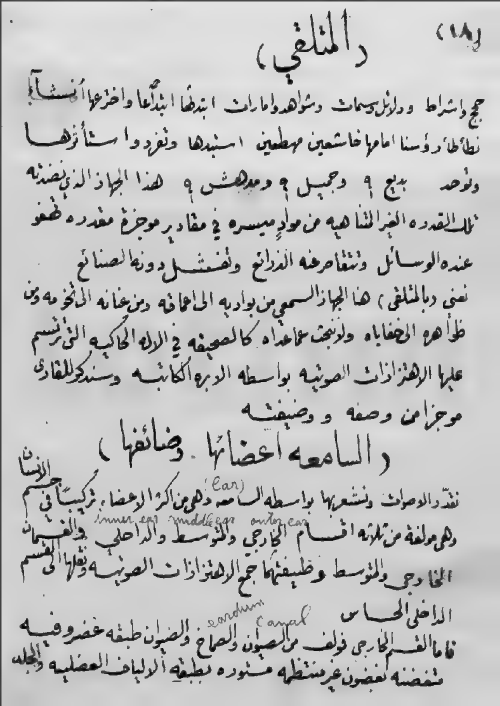 (١٨)
(المتلقي)
حجج واشراط ودلائل وسمات وشواهد وامارات ابتدعها ابتداعًا واخترعها أنشأء
نطأطأ رؤسنا امامها خاشعين مهطعين استبدها وتفرد واستأثرها
وتوحد بديع و وجميل و ومدهش و هذا الجهاز الذي
تلك القدره الغير المتناهيه من مواد ميسره في مقادير موجزة مقدره
عنده الوسائل وتتقاصر عنه الذرائع وتفشل دونه الصنائع
نعني (بالمتلقي) هنا الجهاز السمعي من بواديه الى اعماقه ومن عنانه الى تخومه ومن
ظواهره الى خفاياه ولا نبحث عما عداه كالصحيفه في الاله الحاكيه التي ترتسم
عليها الاهتزازات الصوتيه بواسطه الابره الكاتبه وسنذكر للقارئ
موجزا من وصفه ووضيفته
(السامعه اعضائها . وضائفها)
نقدّر الاصوات ونشعر بها بواسطه السامعه (ear) وهي من اكثر الاعضاء تركيبًا في جسم الانسان
وهي مولفة من ثلاثه اقسام الخارجي outer ear والمتوسط middle ear والداخلي inner ear والقسمان
الخارجي والمتوسط وظيفتهما جمع الاهتزازات الصوتيه ونقلها الى القسم
الداخلي الحساس
فاما القسم الخارجي فولف من الصيوان والصماخ canal eardum والصيوان طبقه غضروفيه
متغضنه بغضون غير منتظمه مستوره بطبقه الالياف العضليه والجلد